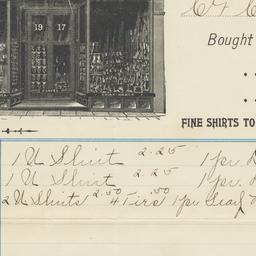 19 17
Bought
FINE SHIRTS TO
1 U Shirt 2.25 1 pr
1 U Shirt 2.25 1 pr.
2 U Shirts 2.50 4 Ties .50 1 pr